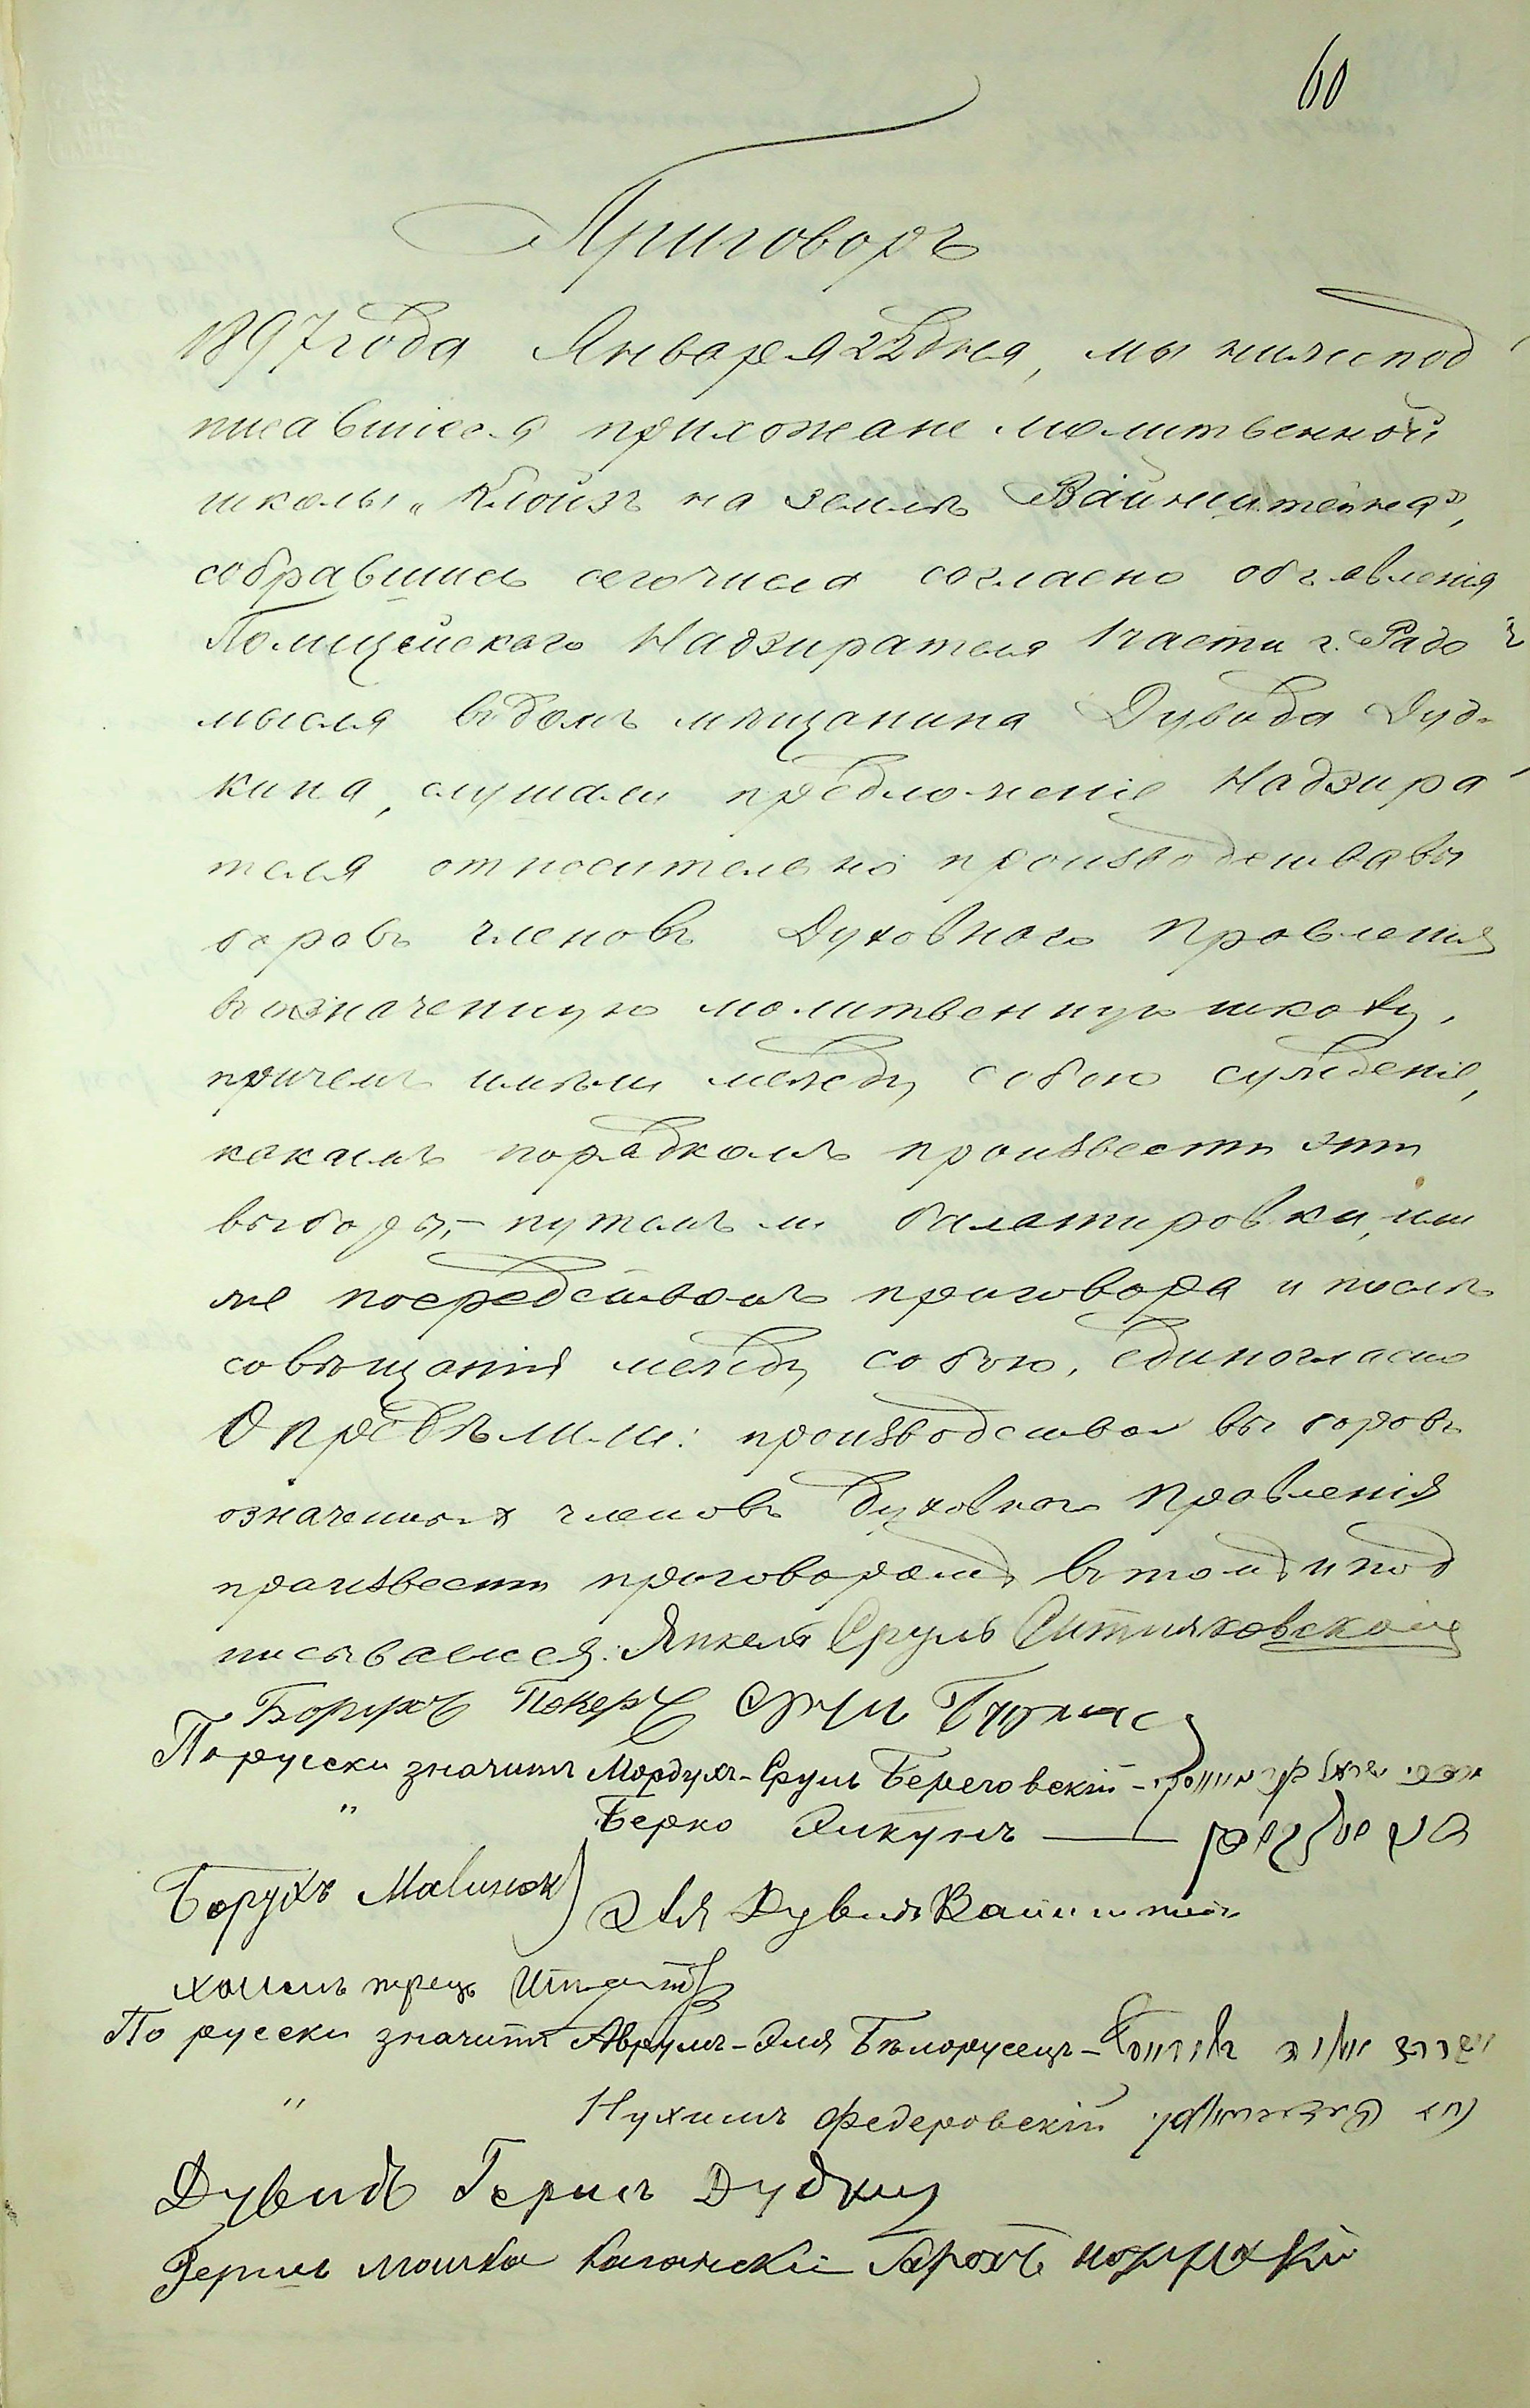 60
Приговоръ
1897 года Января 22 дня, мы нижепод
писавшіеся прихожане молитвенной
школы „Клойзъ на землѣ Вайнштейна",
собравшись сего числа согласно объявленія
Полицейскаго Надзирателя 1 части г. Радо
мысля въ домъ мѣщанина Дувида Дуд-
кина, слушали предложеніе Надзира
теля относительно производства вы
боровъ членовъ Духовнаго Правленія
въ означенную молитвенную школу,
причемъ имѣли между собою сужденіе,
какимъ порядкомъ произвести эти
выборы, – путемъ ли балатировки, или
же посредствомъ приговора и послѣ
совѣщанія между собою, единогласно
Опредѣлили: производство выборовъ
означенныхъ членовъ Духовнаго Правленія
произвести приговоромъ въ томъ и под
писываемся. Янкель Сруль
Борухъ Покеръ
По русски значитъ Мордухъ-Сруль Береговскій –
" Берко Янкунъ —
Борухъ Малинок
Эля Дувидъ Вайнштейн
По русски значитъ Аврумъ-Эля Бѣлорусецъ –
" Нухимъ Федеровскій
Дувидъ Герш Дудкин
Герш Мошко